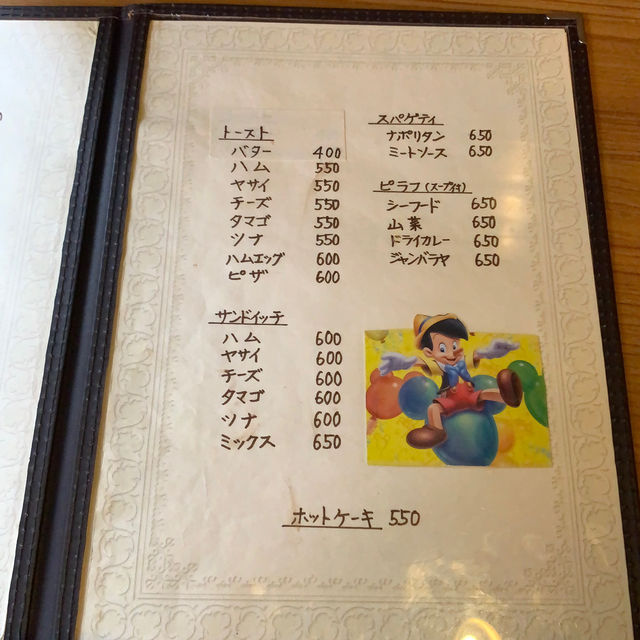 トースト
バター 400
ハム 550
ヤサイ 550
チーズ 550
タマゴ 550
ツナ 550
ハムエッグ 600
ピザ 600
サンドイッチ
ハム 600
ヤサイ 600
チーズ 600
タマゴ 600
ツナ 600
ミックス 650
スパゲティ
ナポリタン 650
ミートソース 650
ピラフ(スープ付)
シーフード 650
山菜 650
ドライカレー 650
ジャンバラヤ 650
ホットケーキ 550